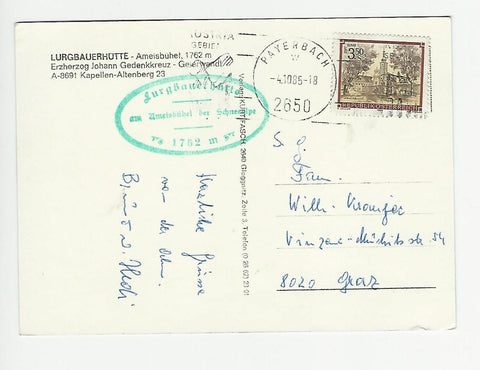 LURGBAUERHÜTTE - Ameisbühel, 1762 m
Erzherzog Johann Gedenkkreuz - Geierwandt
A-8691 Kapellen-Altenberg 23
AUSTRIA
PAYERBACH
-4.1085-18
2650
3.50
REPUBLIK ÖSTERREICH
Lurgbauerhütte
am Ameisbühel der Schneealpe
1762 m
Verlag KURT FASCH, 2640 Gloggnitz, Zeile 3, Telefon (0 26 62) 23 01
Herzliche Grüsse
von der Alm.
Bruno u. Hedi
Fam.
Willi
8020 Graz